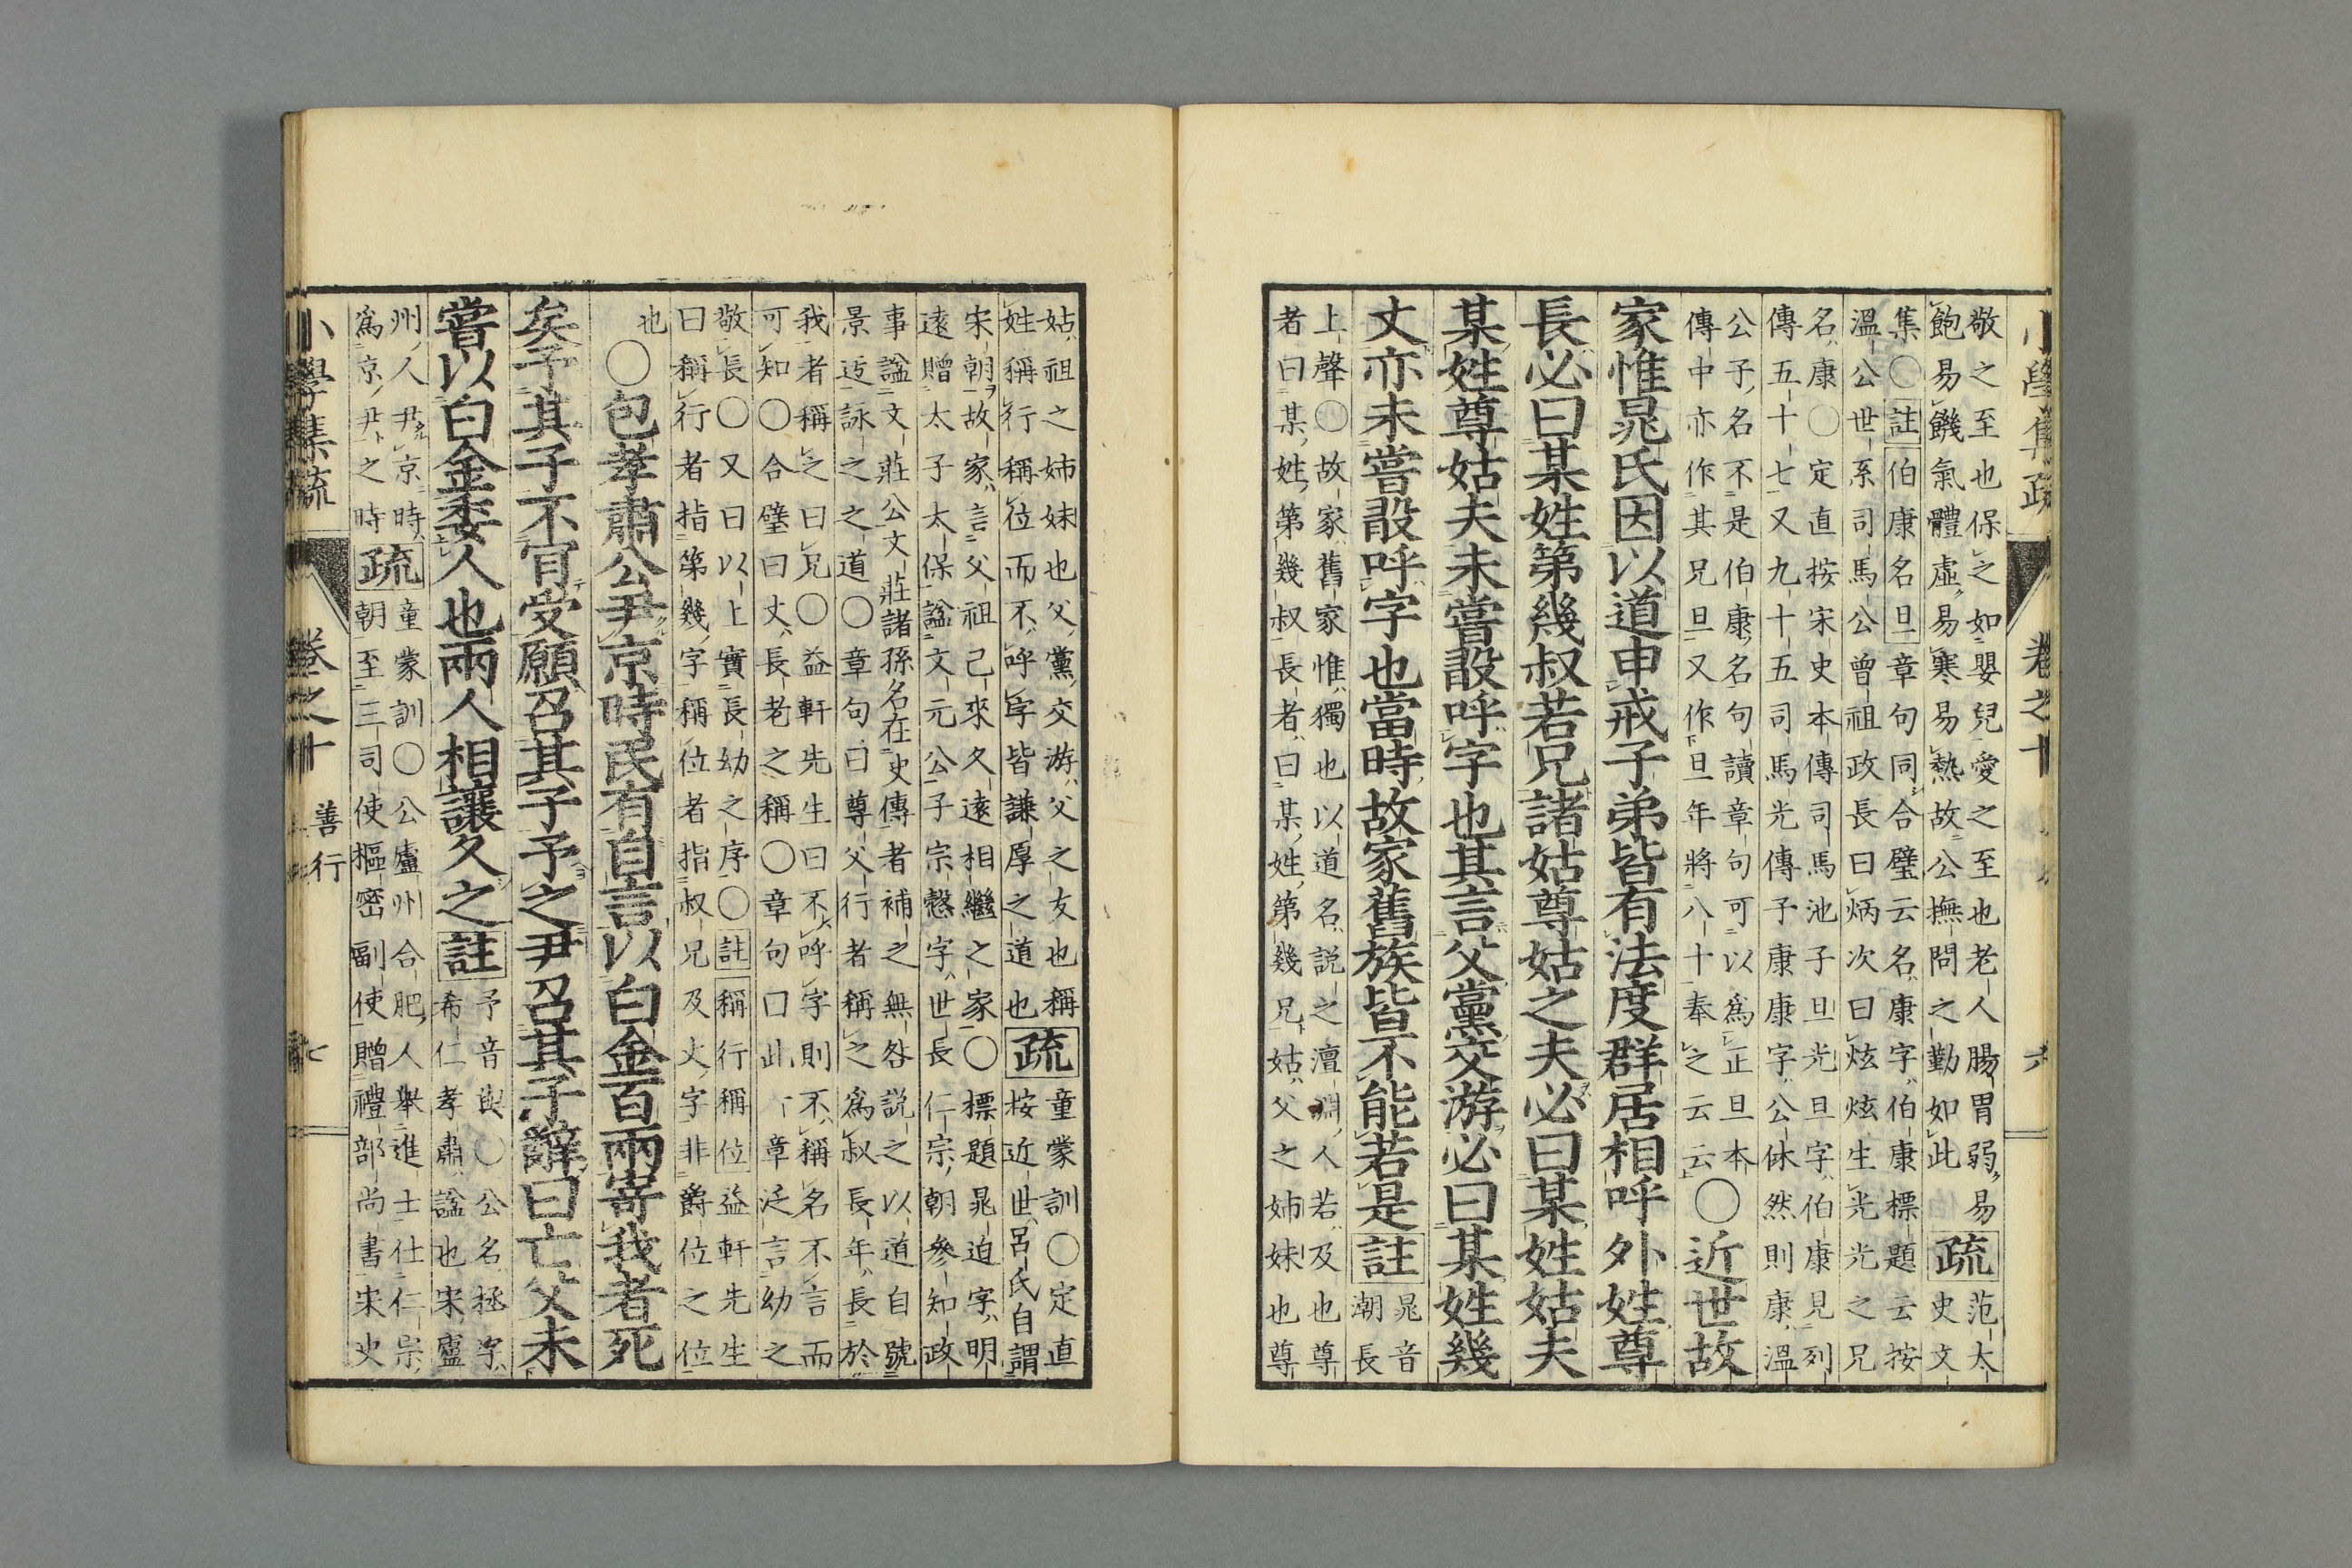 小學集疏 卷之十 六
敬之至也保之如嬰兒愛之至也老人腸胃弱易
飽易饑氣體虛易寒易熱故公撫問之勤如此
疏
范太
史文
集〇註伯康名旦章句同合璧云名康字伯康標題云按
溫公世系司馬公曾祖政長曰炳次曰炫炫生光光之兄
名康〇定直按宋史本傳司馬池子旦光旦字伯康見列
傳五十七又九十五司馬光傳子康康字公休然則康溫
公子名不是伯康名句讀章句可以爲正旦本
傳中亦作其兄旦又作旦年將八十奉之云云
〇近世故
家惟晁氏因以道申戒子弟皆有法度群居相呼外姓尊
長必曰某姓第幾叔若兄諸姑尊姑之夫必曰某姓姑夫
某姓尊姑夫未嘗敢呼字也其言父黨交游必曰某姓幾
丈亦未嘗敢呼字也當時故家舊族皆不能若是註
晁音
潮長
上聲〇故家舊家惟獨也以道名説之澶淵人若及也尊
者曰某姓第幾叔長者曰某姓第幾兄姑父之姉妹也尊
姑祖之姉妹也父黨交游父之友也稱
姓稱行稱位而不呼字皆謙厚之道也
疏
童蒙訓〇定直
按近世呂氏自謂
宋朝故家言父祖己來久遠相繼之家〇標題晁迫字明
遠贈太子太保諡文元公子宗愨字世長仁宗朝參知政
事諡文莊公文莊諸孫名在史傳者補之無咎説之以道自號
景迂詠之之道〇章句曰尊父行者稱之爲叔長年長於
我者稱之曰兄〇益軒先生曰不呼字則不稱名不言而
可知〇合璧曰丈長老之稱〇章句曰此一章泛言幼之
敬長〇又曰以上實長幼之序〇註稱行稱位益軒先生
曰稱行者指第幾字稱位者指叔兄及丈字非爵位之位
也
〇包孝肅公尹京時民有自言以白金百兩寄我者死
矣予其子不肯受願召其子予之尹召其子辭曰亡父未
嘗以白金委人也兩人相讓久之註
予音與〇公名拯字
希仁孝肅諡也宋廬
州人尹京時
爲京尹之時
疏
童蒙訓〇公廬州合肥人舉進士仕仁宗
朝至三司使樞密副使贈禮部尚書宋史
小學集疏 卷之十 善行 七